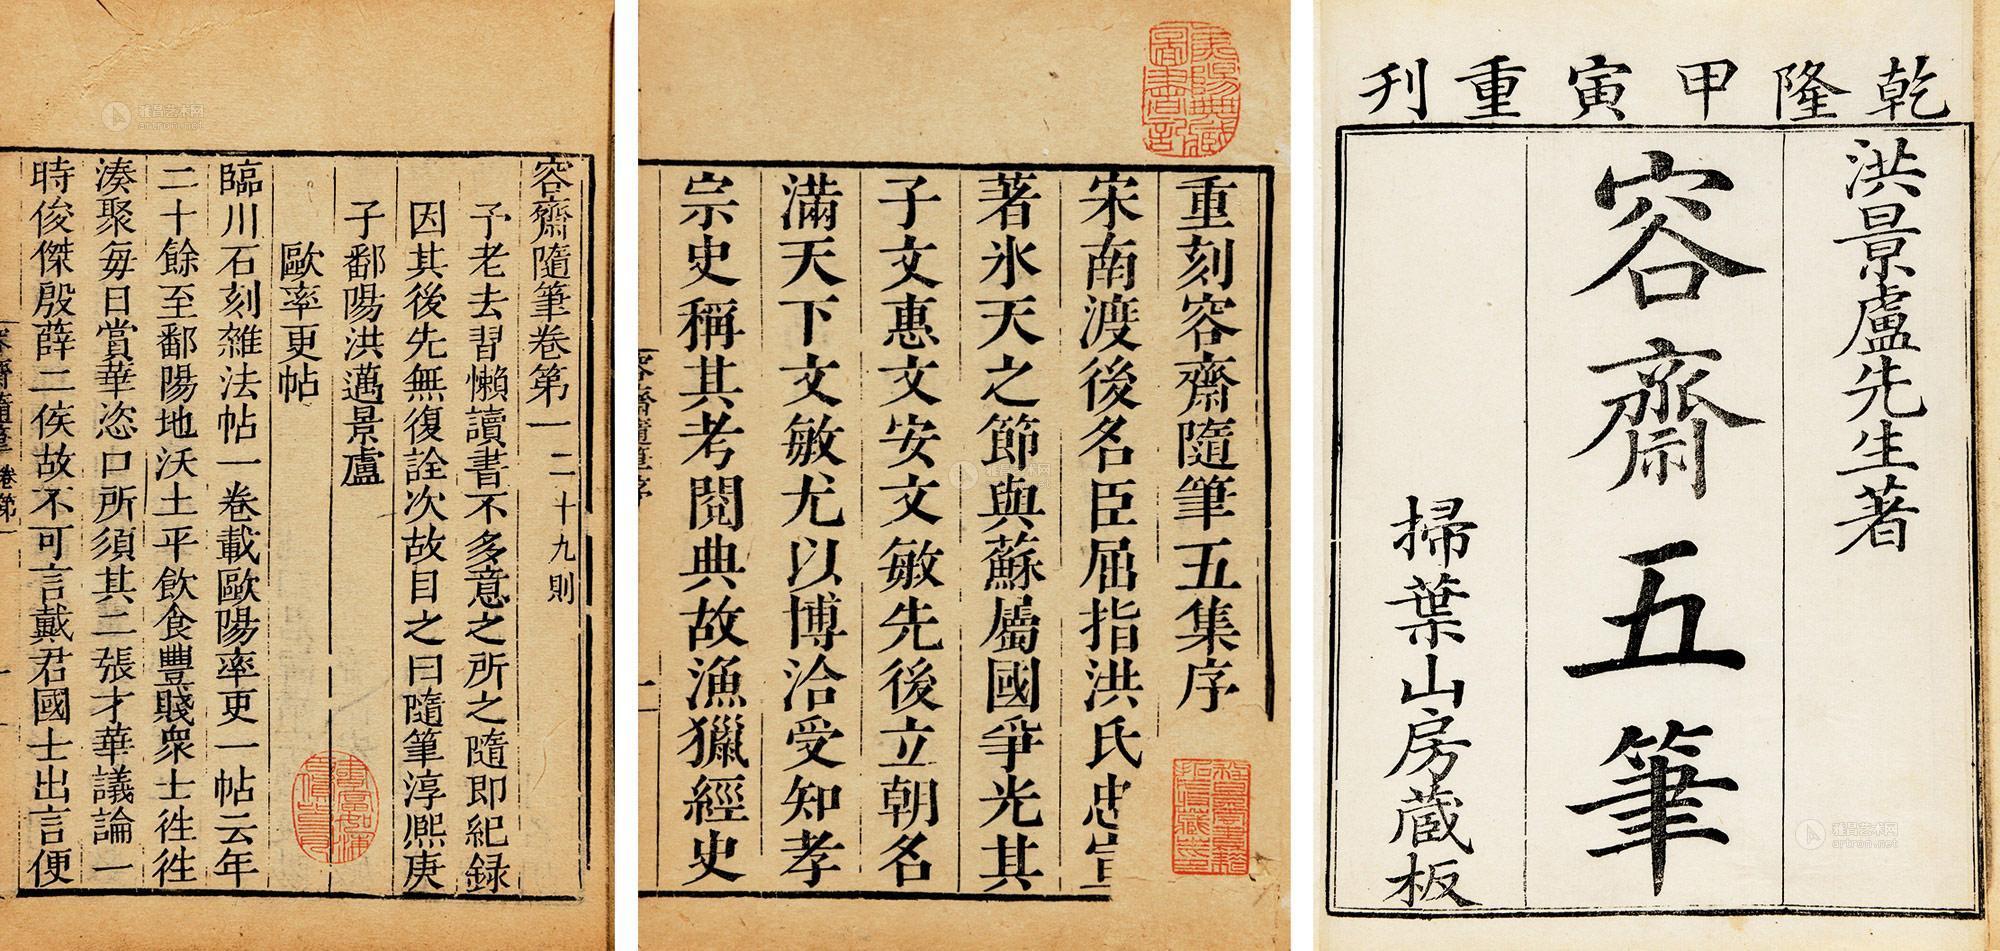 乾隆甲寅重刊
洪景盧先生著
容齋五筆
掃葉山房蔵板
重刻容齋隨筆五集序
宋南渡後名臣屈指洪氏忠宣
著氷天之節與蘇屬國爭光其
子文惠文安文敏先後立朝名
滿天下文敏尤以博洽受知孝
宗史稱其考閱典故漁獵經史
容齋隨筆序
一
容齋隨筆卷第一 二十九則
予老去習懶讀書不多意之所之隨即紀錄
因其後先無復詮次故目之曰隨筆淳熙庚
子鄱陽洪邁景盧
歐率更帖
臨川石刻雜法帖一卷載歐陽率更一帖云年
二十餘至鄱陽地沃土平飲食豐賤衆士徃徃
湊聚每日賞華恣口所須其二張才華議論一
時俊傑殷薛二侯故不可言戴君國士出言便
容齋隨筆 卷第一
一
雅昌艺术网
artron.net
雅昌艺术网
artron.net
雅昌艺术网
artron.net